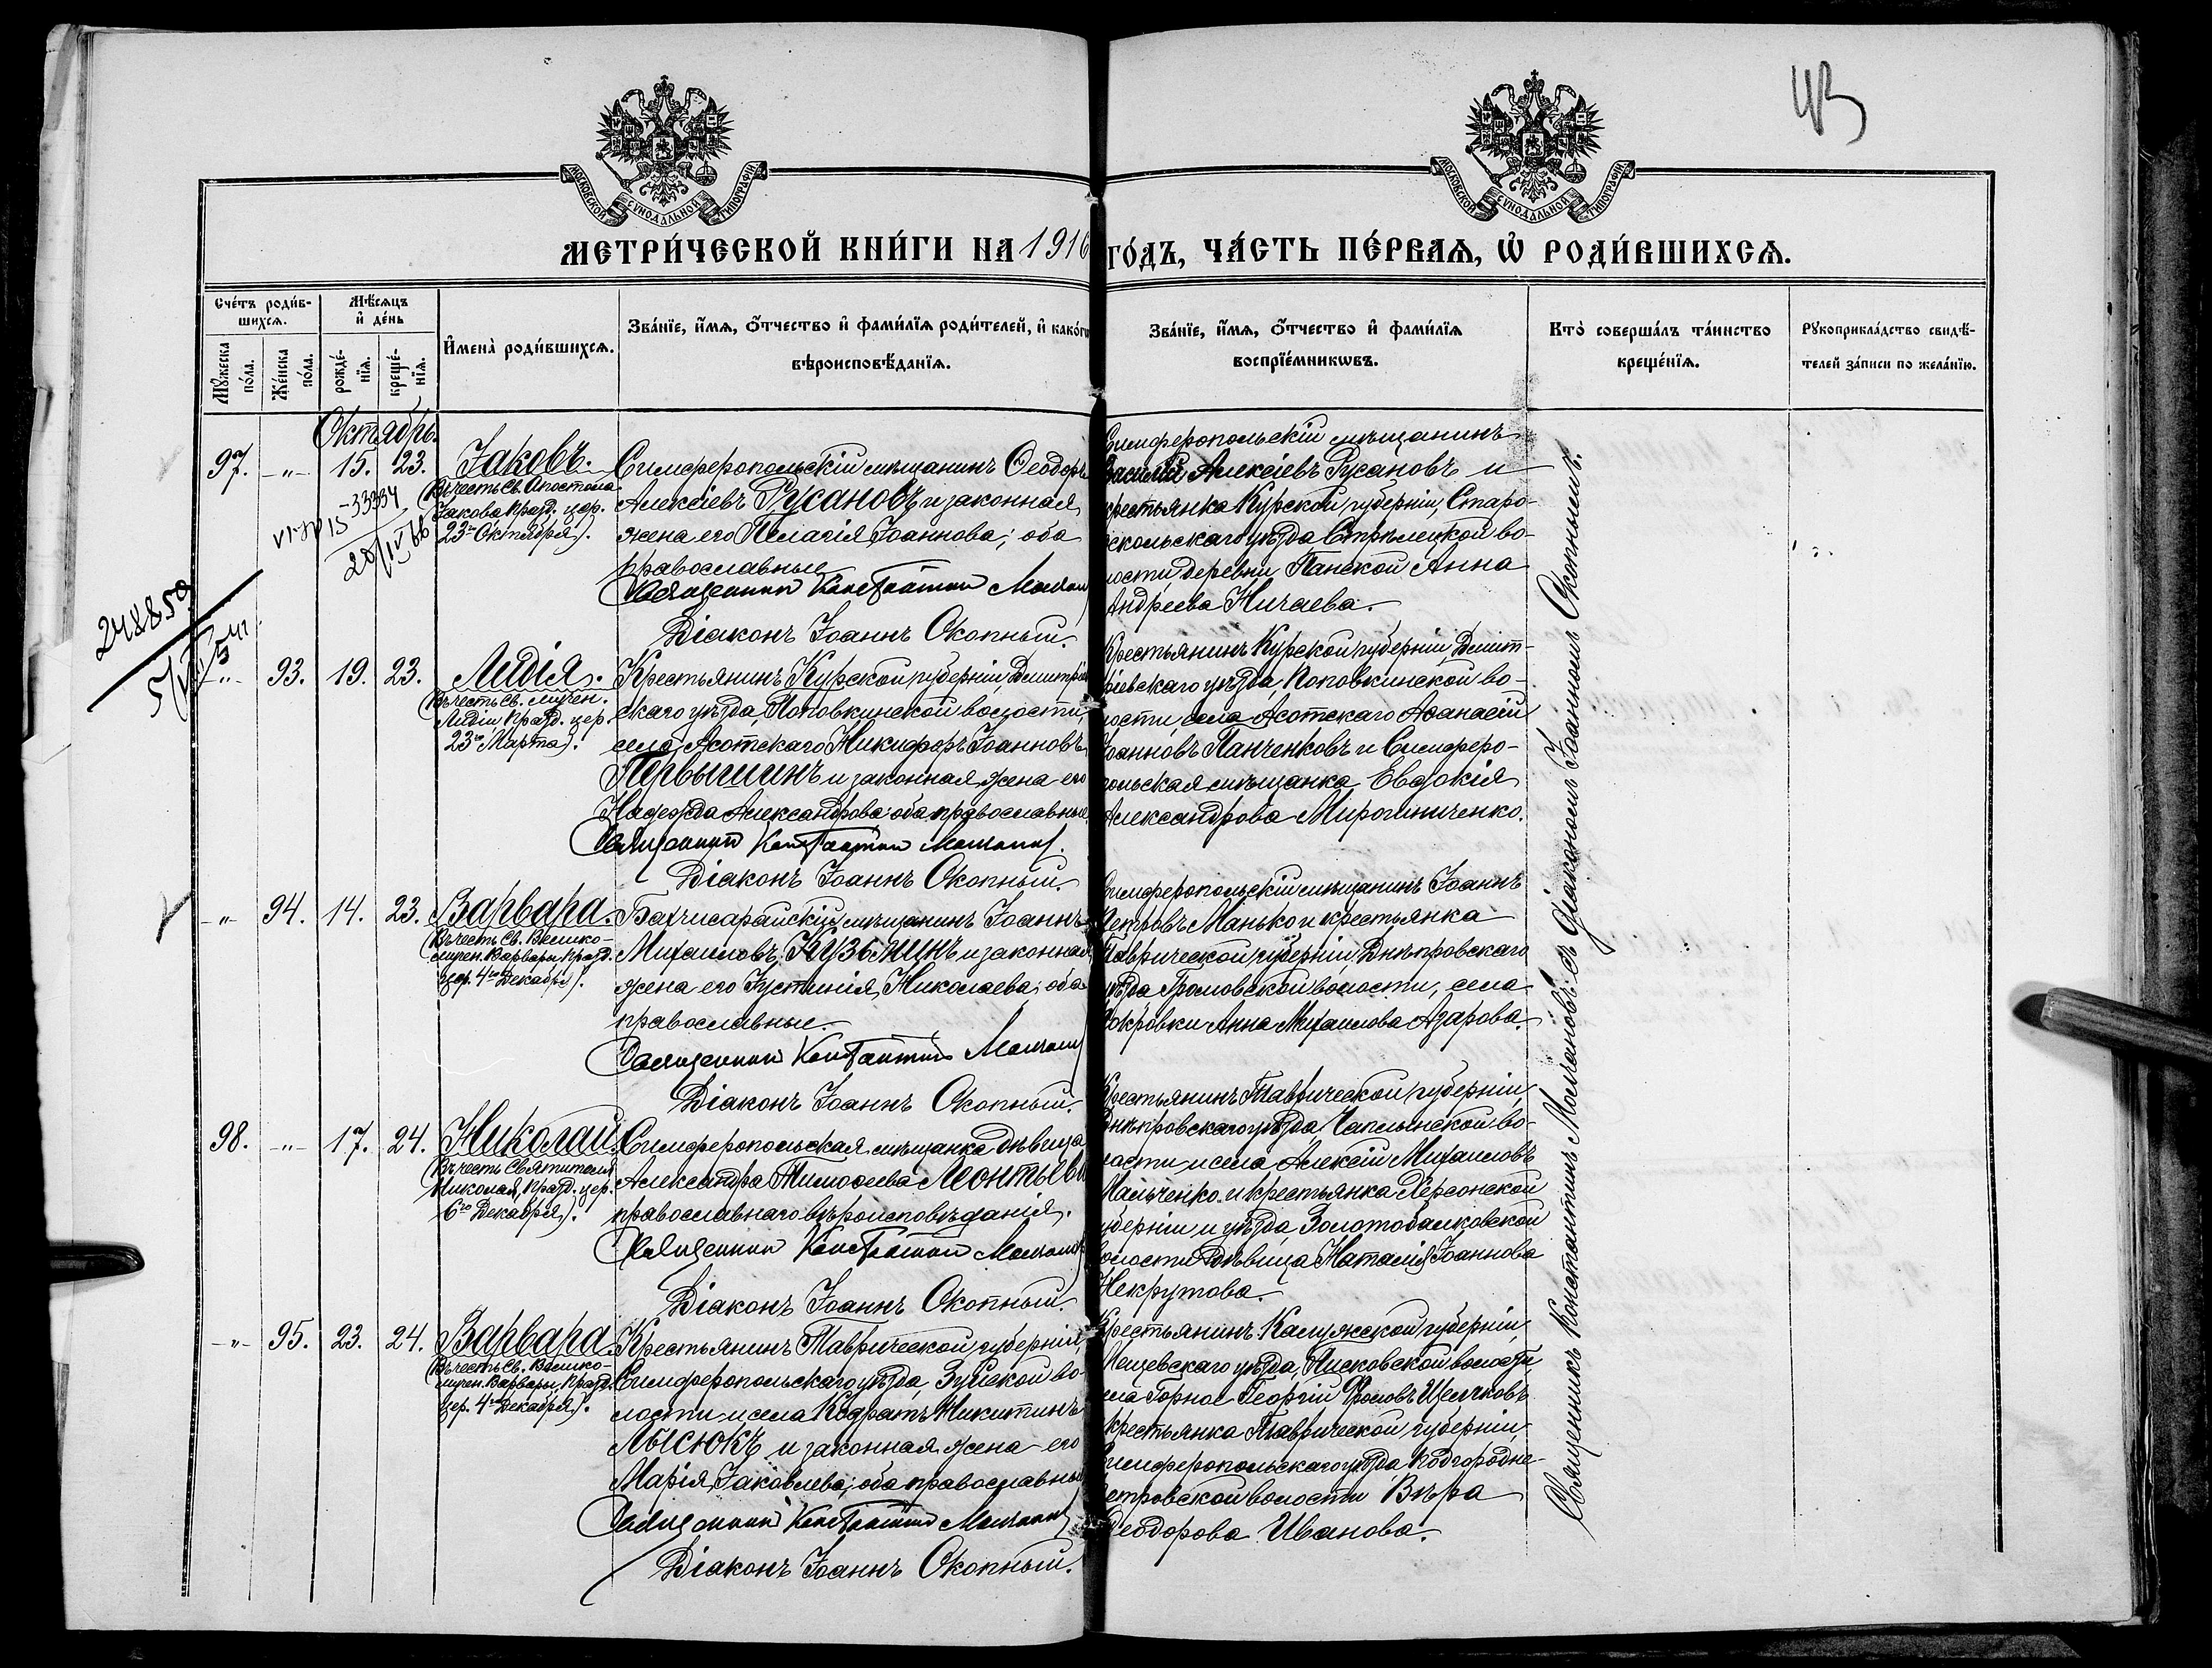 43
МОСКОВСКОЙ СУНОДАЛЬНОЙ ТИПОГРАФІИ
МОСКОВСКОЙ СУНОДАЛЬНОЙ ТИПОГРАФІИ
МЕТРИ́ЧЕСКОЙ КНИ́ГИ НА 1916 ГО́ДЪ, ЧА́СТЬ ПЕ́РВАѦ, Ѡ҆ РОДИ́ВШИХСѦ.
Сче́тъ роди́в-
шихсѧ.
Мꙋжеска по́ла.
Же́нска по́ла.
Мѣ́сѧцъ и҆ де́нь
рожде́-нїѧ.
креще́-нїѧ.
И҆мена̀ роди́вшихсѧ.
Зва́нїе, и҆́мѧ, ѻ҆́тчество и҆ фами́лїѧ роди́телей, и҆ како́гѡ
вѣроисповѣ́данїѧ.
Зва́нїе, и҆́мѧ, ѻ҆́тчество и҆ фами́лїѧ
воспрїе́мникѡвъ.
Кто̀ соверша́лъ та́инство
креще́нїѧ.
Рꙋкоприкла́дство свидѣ́-
телей за́писи по жела́нїю.
Октябрь.
97. -"- 15. 23. Іаковъ.
(Въ честь Св. Апостола
Іакова празд. цер.
23го Октября).
Симферопольскій мѣщанинъ Ѳеодоръ
Алексіевъ Русановъ и законная
жена его Пелагія Іоаннова; оба
православные
Священникъ Константинъ
Діаконъ Іоаннъ Окопный.
Симферопольскій мѣщанинъ
Василій Алексіевъ Русановъ и
крестьянка Курской губерніи, Старо-
оскольскаго уѣзда Стрѣлецкой во-
лости, деревни Панской Анна
Андреева Ничаева.
33334
248859
-"- 93. 19. 23. Лидія.
(Въ честь Св. мучен.
Лидіи празд. цер.
23го Марта).
Крестьянинъ Курской губерніи, Дмитріев
скаго уѣзда, Поповкинской волости,
села Асотскаго Никифоръ Іоанновъ
Первышинъ и законная жена его
Надежда Александрова; оба православные.
Священникъ Константинъ
Діаконъ Іоаннъ Окопный.
Крестьянинъ Курской губерніи, Дмит-
ріевскаго уѣзда, Поповкинской во-
лости, села Асотскаго Аѳанасій
Іоанновъ Панченковъ и Симферо-
польская мѣщанка Евдокія
Александрова Мирошниченко.
-"- 94. 14. 23. Варвара.
(Въ честь Св. Велико-
мучен. Варвары, празд.
цер. 4го Декабря).
Бахчисарайскій мѣщанинъ Іоаннъ
Михаиловъ Кузьминъ и законная
жена его Іустинія Николаева; оба
православные.
Священникъ Константинъ
Діаконъ Іоаннъ Окопный.
Симферопольскій мѣщанинъ Іоаннъ
Петровъ Манько и крестьянка
Таврической губерніи, Днѣпровскаго
уѣзда Громовской волости, села
Покровки Анна Михаилова Азарова.
98. -"- 17. 24. Николай.
(Въ честь Святителя
Николая, празд. цер.
6го Декабря).
Симферопольская мѣщанка дѣвица
Александра Тимоѳеева Леонтьева
православнаго вѣроисповѣданія.
Священникъ Константинъ
Діаконъ Іоаннъ Окопный.
Крестьянинъ Таврической губерніи,
Днѣпровскаго уѣзда, Чаплынской во-
лости и села Алексій Михаиловъ
Мальченко и крестьянка Херсонской
губерніи и уѣзда, Золотобалковской
волости дѣвица Наталія Іоаннова
Некрутова.
-"- 95. 23. 24. Варвара.
(Въ честь Св. Велико-
мучен. Варвары, празд.
цер. 4го Декабря).
Крестьянинъ Таврической губерніи,
Симферопольскаго уѣзда, Зуйской во-
лости и села Кодратъ Никитинъ
Лысюкъ и законная жена его
Марія Іаковлева; оба православные
Священникъ Константинъ
Діаконъ Іоаннъ Окопный.
Крестьянинъ Калужской губерніи,
Мещевскаго уѣзда, Писковской волости,
села Горное Георгій Фроловъ
крестьянка Таврической губерніи,
Симферопольскаго уѣзда Подгородне-
Петровской волости Вѣра
Ѳеодорова Иванова.
Священникъ Константинъ Молчановъ съ діакономъ Іоанномъ Окопнымъ.